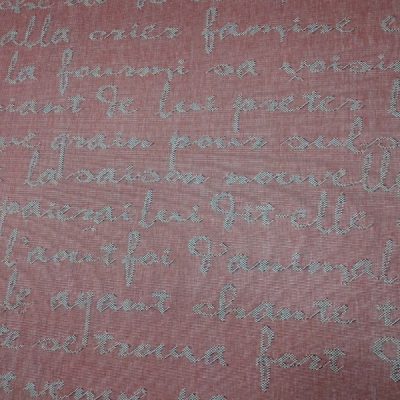 alla crier famine
la fourmi sa voisi
iant de lui preter
grain pour subs
la saison nouvell
paierai lui dit-elle
l'aout foi d'animal
le ayant chante
se trouva fort